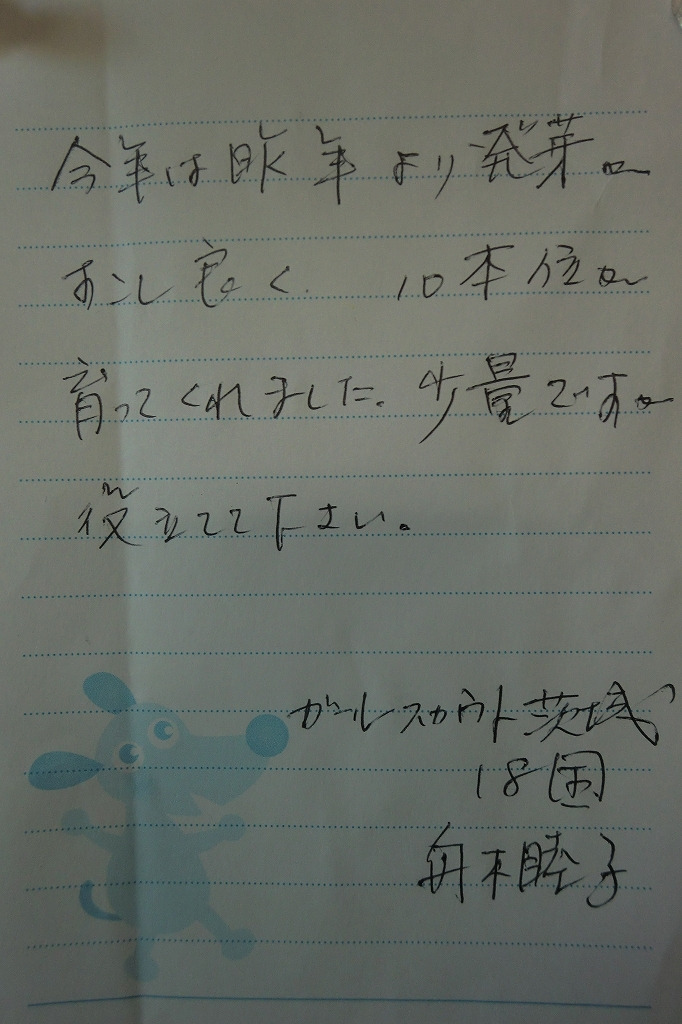 今年は昨年より発芽が
すこし良く、10本位が
育ってくれました。少量ですが
役立てて下さい。
ガールスカウト茨城
18団
舟木睦子